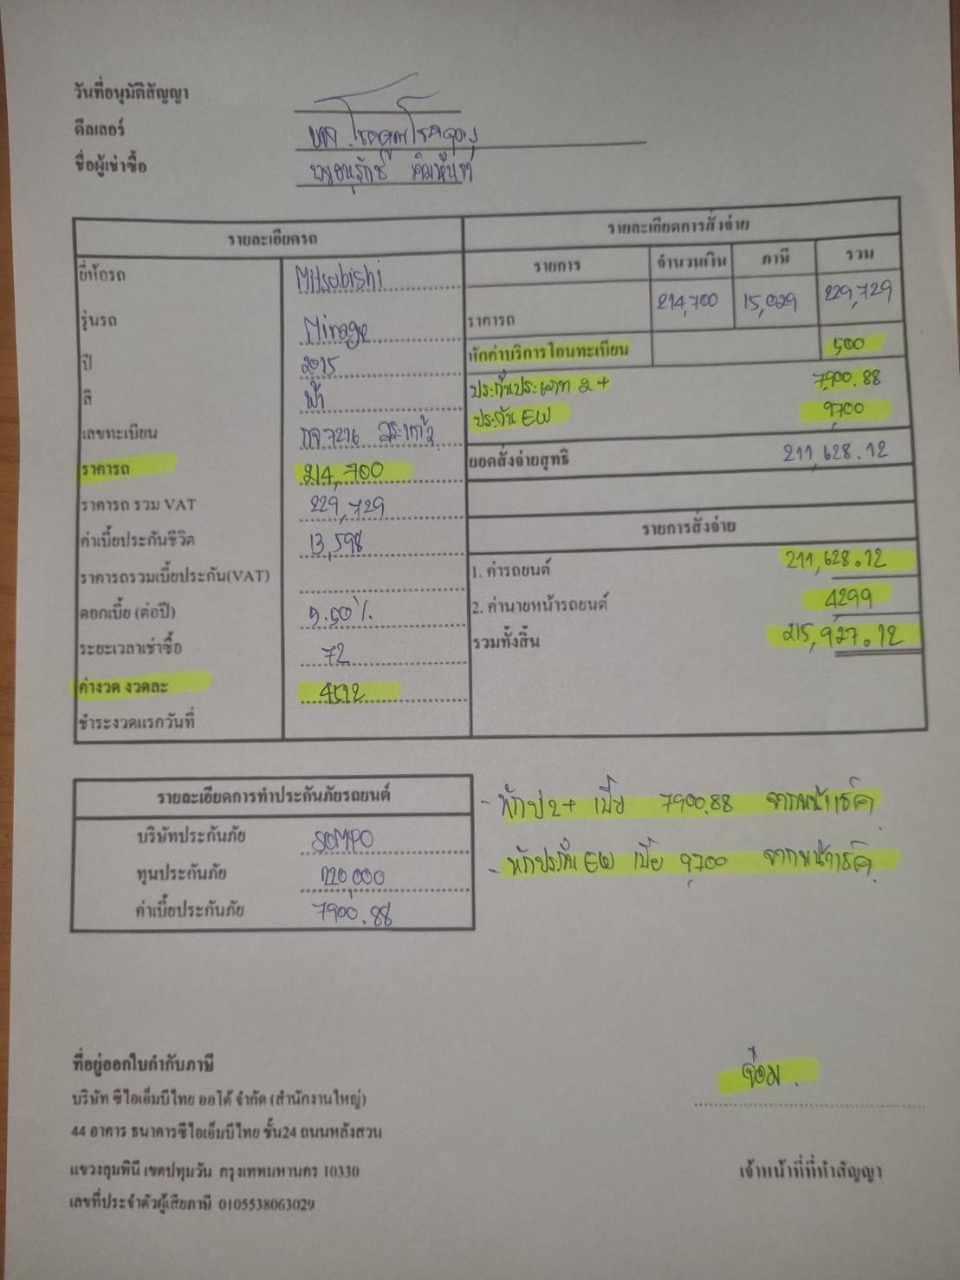 วันที่อนุมัติสัญญา
ดีลเลอร์
ชื่อผู้เช่าซื้อ
รายละเอียดรถ
ยี่ห้อรถ Mitsubishi
รุ่นรถ Mirage
ปี 2015
สี ฟ้า
เลขทะเบียน 7216 สระแก้ว
ราคารถ 214,700
ราคารถ รวม VAT 229,729
ค่าเบี้ยประกันชีวิต 13,598
ราคารถรวมเบี้ยประกัน(VAT)
ดอกเบี้ย (ต่อปี) 5.50%
ระยะเวลาเช่าซื้อ 72
ค่างวด งวดละ 4512
ชำระงวดแรกวันที่
รายละเอียดการสั่งจ่าย
รายการ จำนวนเงิน ภาษี รวม
ราคารถ 214,700 15,029 229,729
หักค่าบริการโอนทะเบียน 500
ประกันประเภท 2+ 7900.88
ประกัน EW 9,700
ยอดสั่งจ่ายสุทธิ 211,628.12
รายการสั่งจ่าย
1. ค่ารถยนต์ 211,628.12
2. ค่านายหน้ารถยนต์ 4299
รวมทั้งสิ้น 215,927.12
รายละเอียดการทำประกันภัยรถยนต์
บริษัทประกันภัย SOMPO
ทุนประกันภัย 220,000
ค่าเบี้ยประกันภัย 7900.88
- หัก ป2+ เบี้ย 7900.88 จากหน้าเช็ค
- หักประกัน EW เบี้ย 9,700 จากหน้าเช็ค
ที่อยู่ออกใบกำกับภาษี
บริษัท ซีไอเอ็มบีไทย ออโต้ จำกัด (สำนักงานใหญ่)
44 อาคาร ธนาคารซีไอเอ็มบีไทย ชั้น24 ถนนหลังสวน
แขวงลุมพินี เขตปทุมวัน กรุงเทพมหานคร 10330
เลขที่ประจำตัวผู้เสียภาษี 0105538063029
เจ้าหน้าที่ที่ทำสัญญา